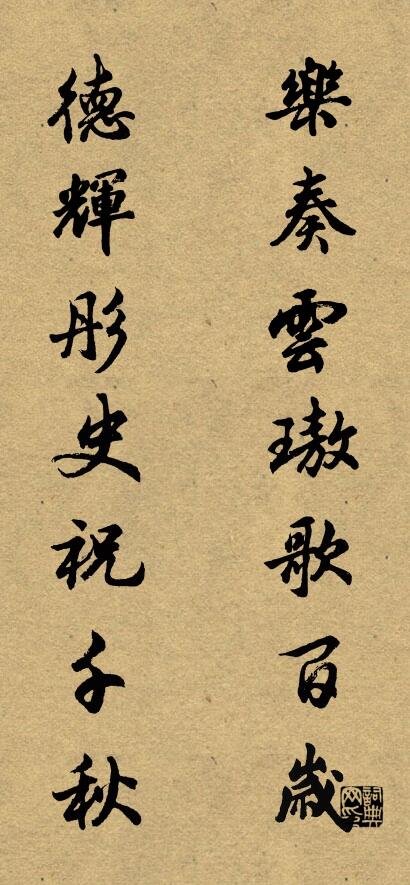 樂奏雲璈歌百歲
德輝彤史祝千秋